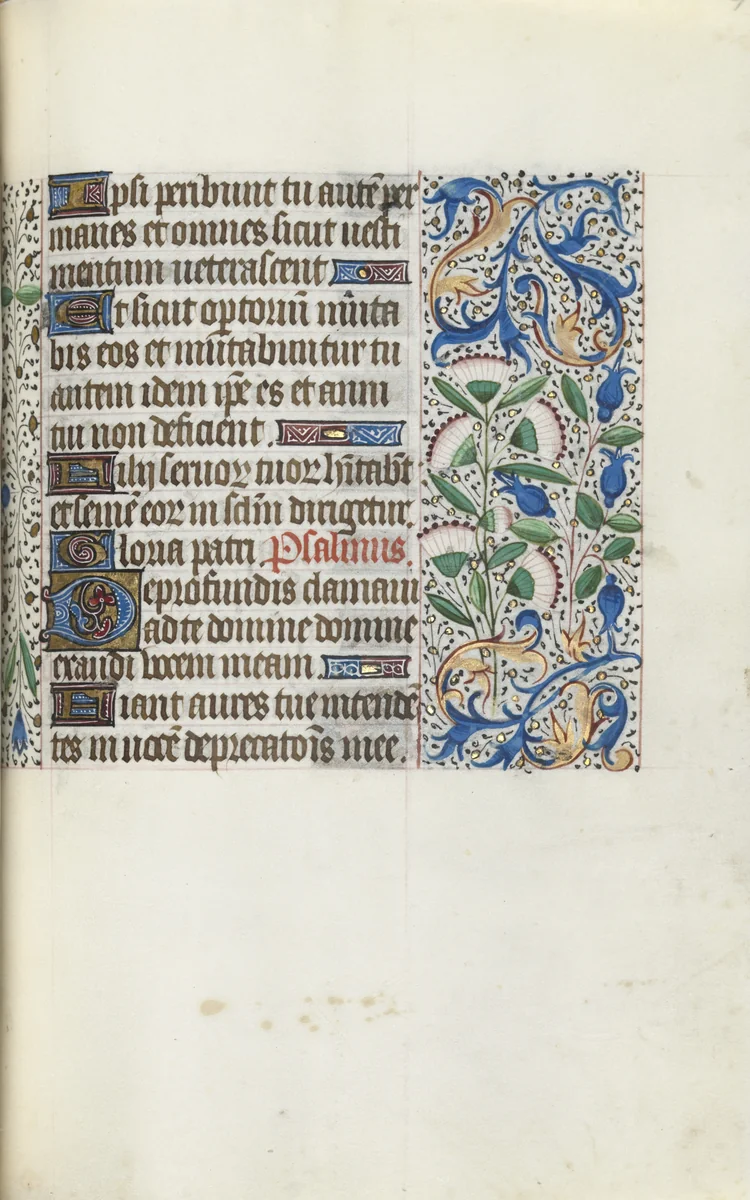 Ipsi peribunt tu autẽ per
manes et omnes sicut uesti
mentum ueterascent
Et sicut optoriũ mũta
bis eos et mũtabuntur tu
autem idem ip̃e es et anni
tui non deficient.
Filij seruoꝝ tuoꝝ hĩtabũt
et semẽ eoꝝ in sc̃lm dirigetur.
Gloria patri Psalmus.
De profundis clamaui
ad te domine domine
exaudi vocem meam
Fiant aures tue intendẽ
tes in uocẽ deprecatoĩs mee.